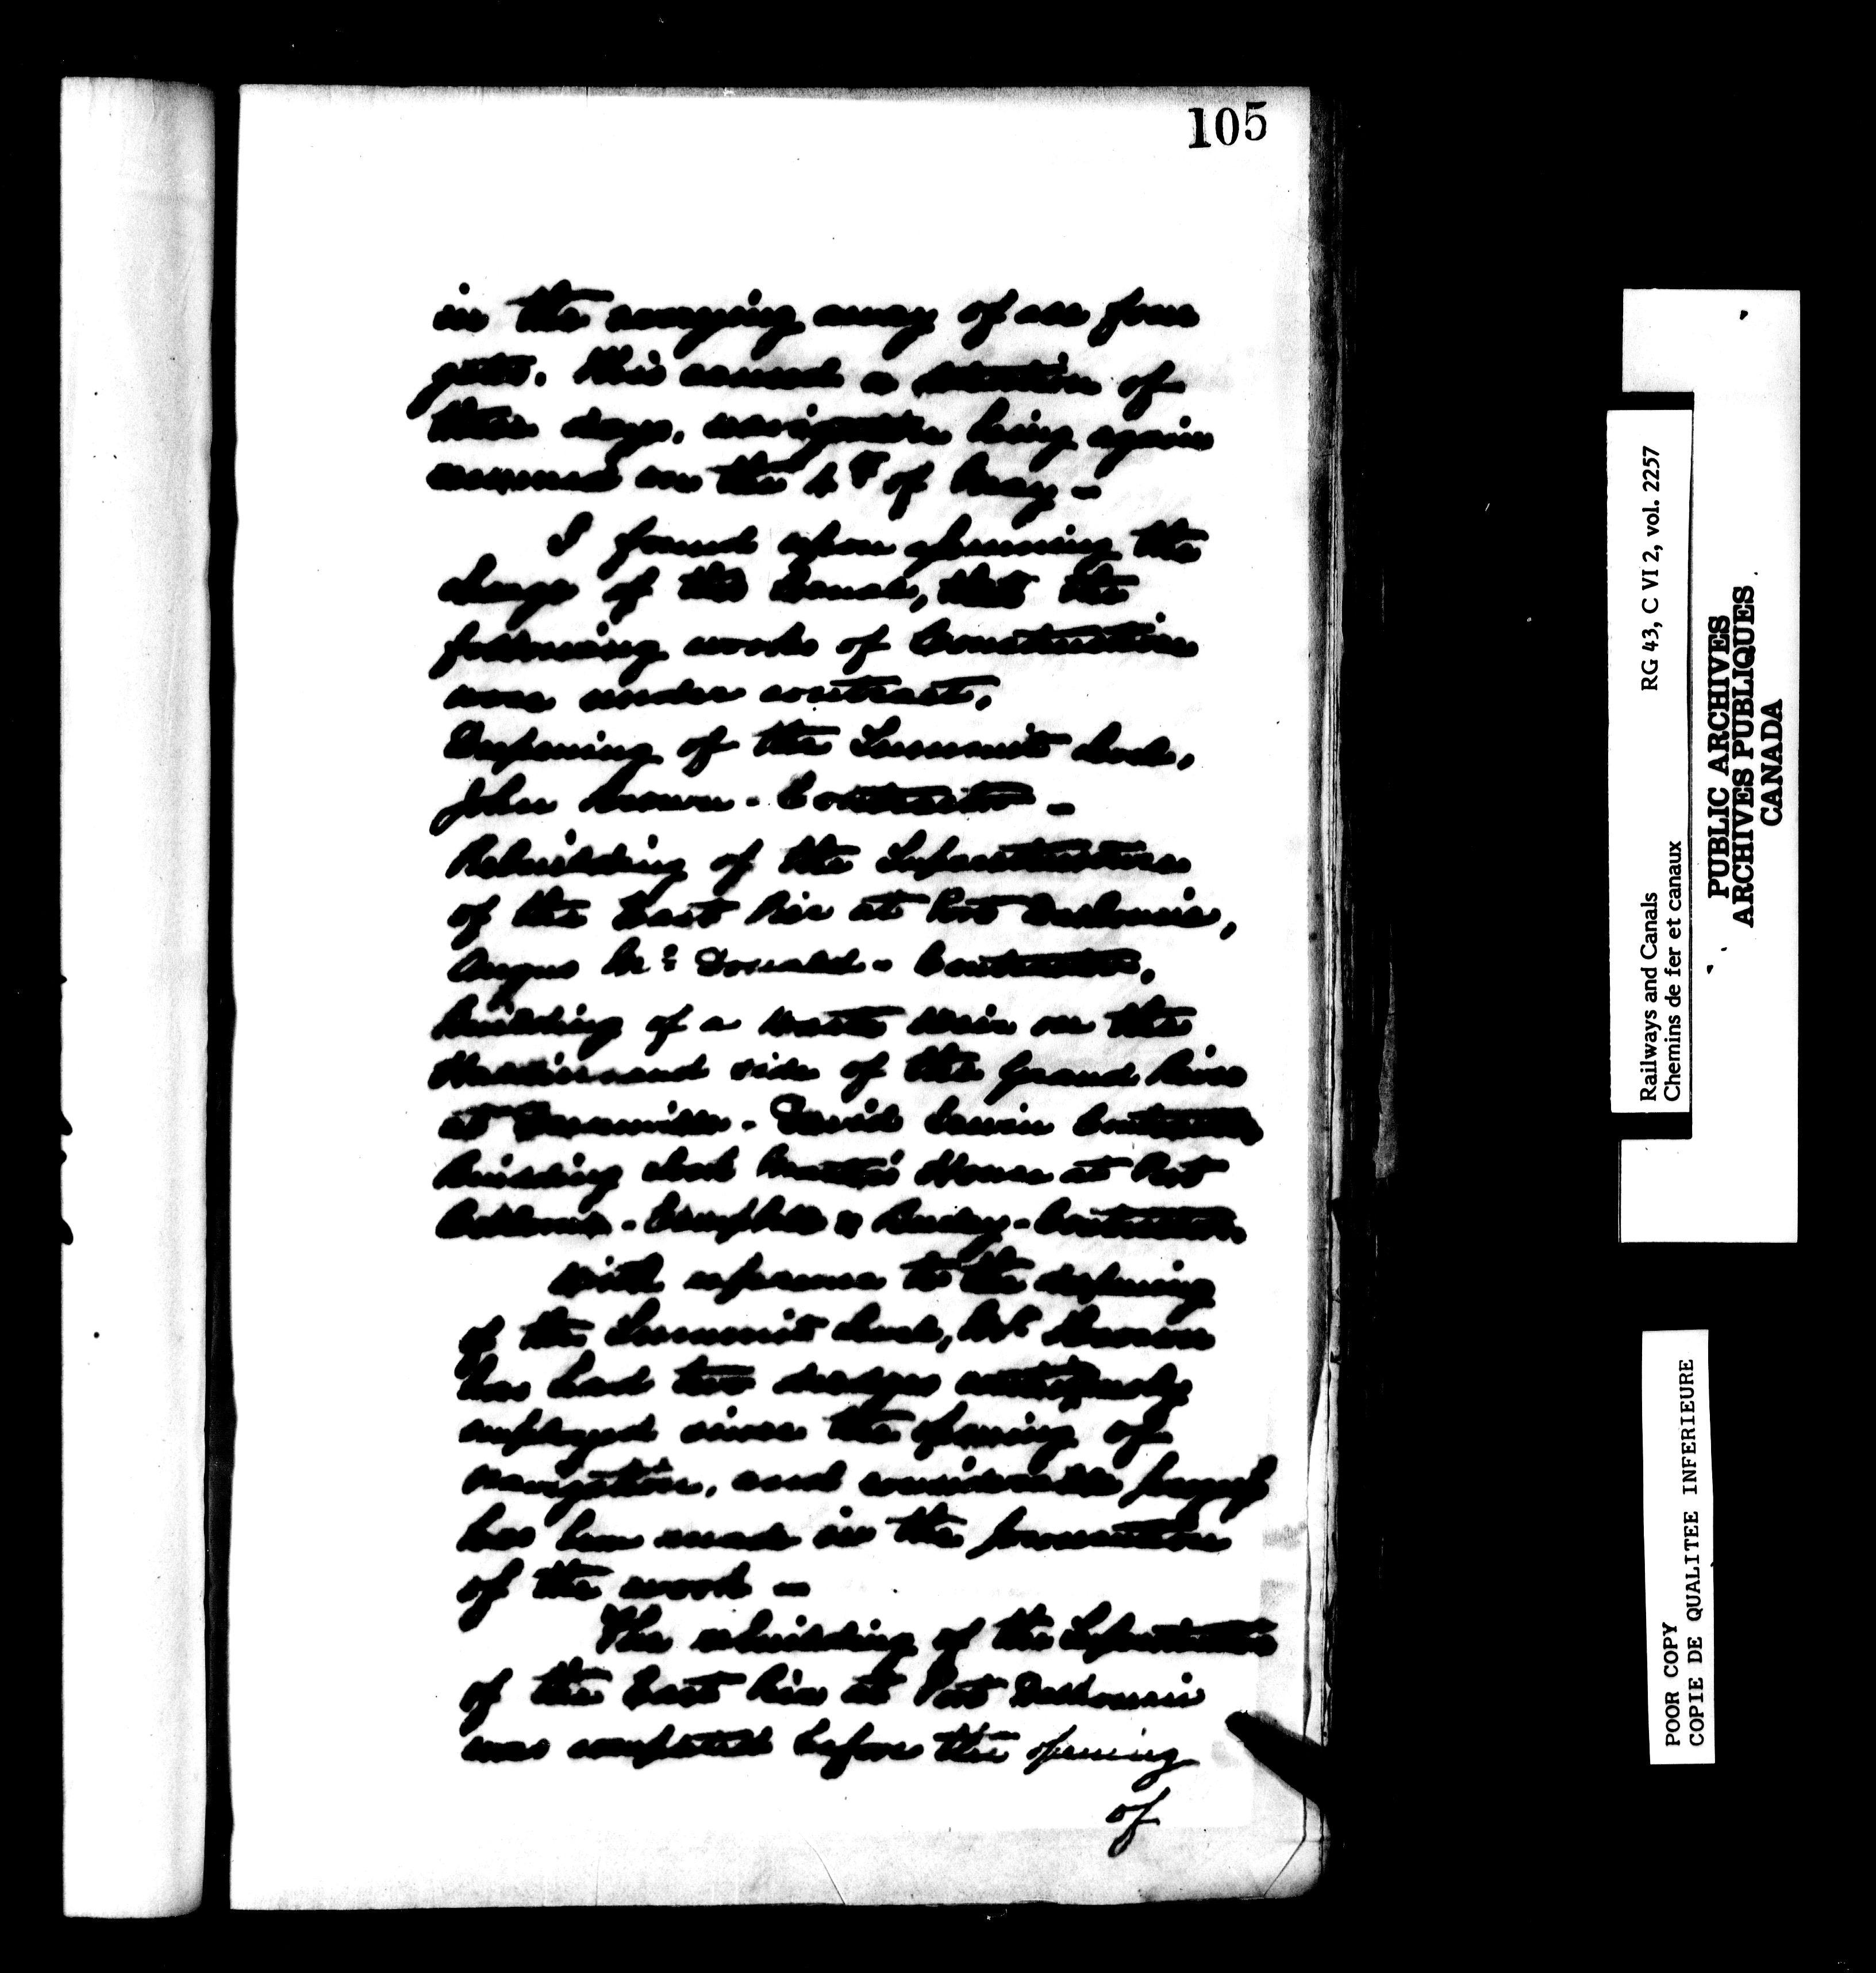 105
in the carrying away of all four
gates. This caused a detention of
three days, navigation being again
resumed on the 4th of May -
I found upon assuming the
charge of the Canal, that the
following works of Construction
were under contract,
Deepening of the Summit level,
John Brown - Contractor -
Rebuilding of the Superstructure
of the East Pier at Port Dalhousie,
Angus McDonald - Contractor,
Building of a Waste Weir on the
side of the Grand River
at Dunnville - David Contractor
Building Lock Master's House at Port
Colborne - & - Contractors.
With reference to the deepening
of the Summit level, Mr Brown
has had two dredges continuously
employed since the opening of
navigation, and considerable progress
has been made in the prosecution
of the work -
The rebuilding of the Superstructure
of the East Pier at Port Dalhousie
was completed before the opening
of
Railways and Canals RG 43, C VI 2, vol. 2257
Chemins de fer et canaux
PUBLIC ARCHIVES
ARCHIVES PUBLIQUES
CANADA
POOR COPY
COPIE DE QUALITEE INFERIEURE